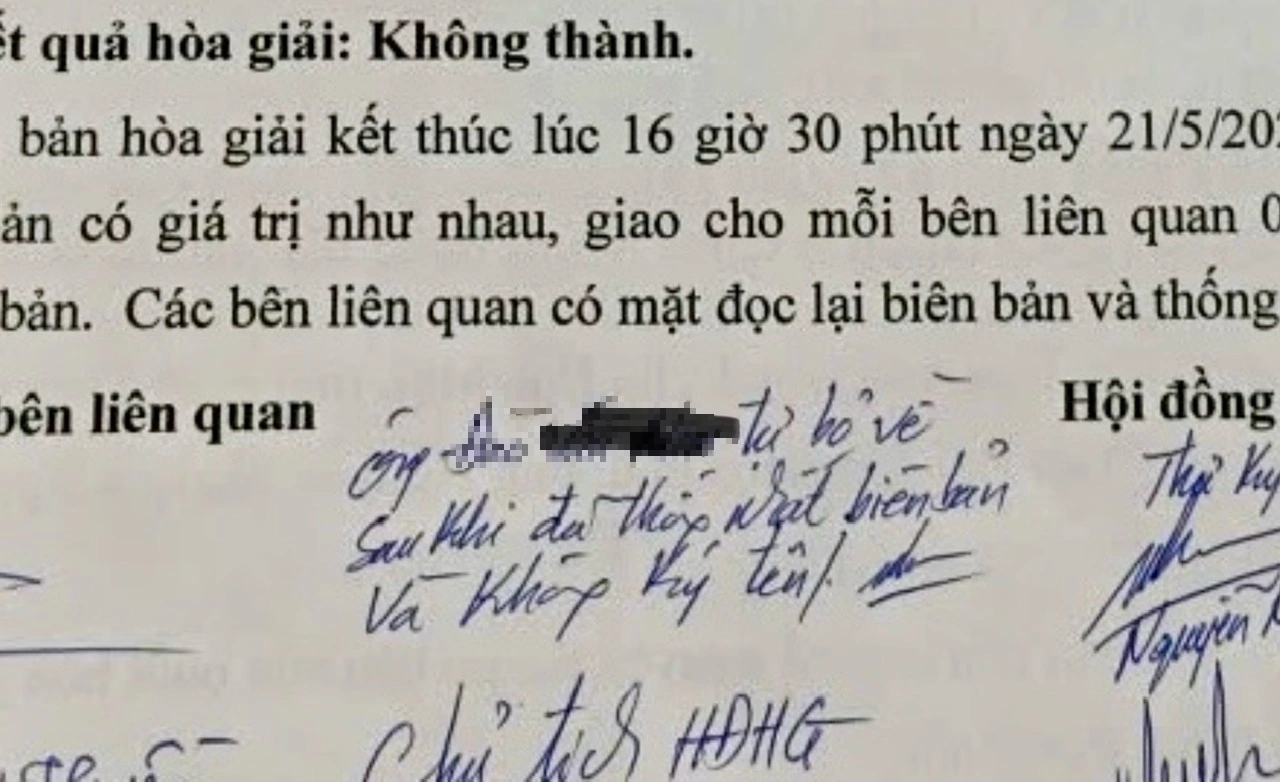 ết quả hòa giải: Không thành.
bản hòa giải kết thúc lúc 16 giờ 30 phút ngày 21/5/202
ản có giá trị như nhau, giao cho mỗi bên liên quan 0
bản. Các bên liên quan có mặt đọc lại biên bản và thống
bên liên quan
ông Đào tự bỏ về
Sau khi đã thống nhất biên bản
Và không ký tên/.
Hội đồng
Thư ký
Nguyễn
Chủ tịch HĐHG